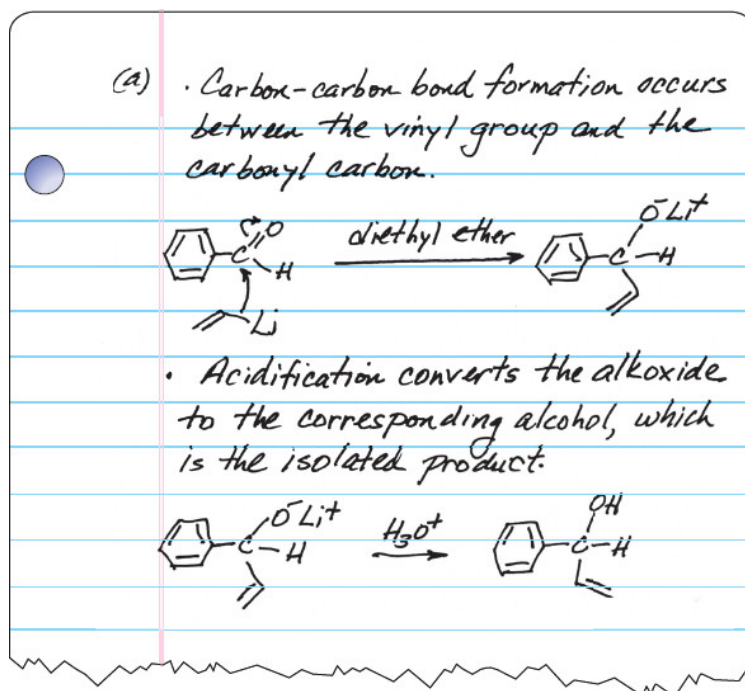 (a) · Carbon-carbon bond formation occurs
between the vinyl group and the
carbonyl carbon.
O⁻Li⁺
O
diethyl ether
C
H
C-H
Li
· Acidification converts the alkoxide
to the corresponding alcohol, which
is the isolated product.
O⁻Li⁺
OH
H₃O⁺
C-H
C-H